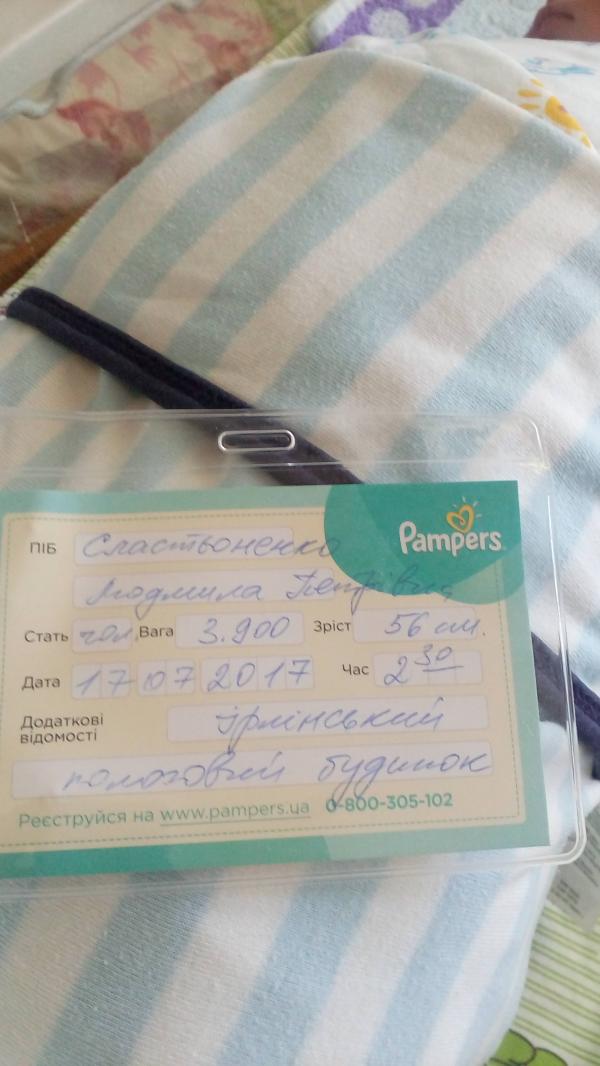 Pampers
ПІБ Сластьоненко
Людмила Петрівна
Стать чол. Вага 3.900 Зріст 56 см.
Дата 17 07 2017 Час 2 30
Додаткові відомості ірпінський
пологовий будинок
Реєструйся на www.pampers.ua 0-800-305-102